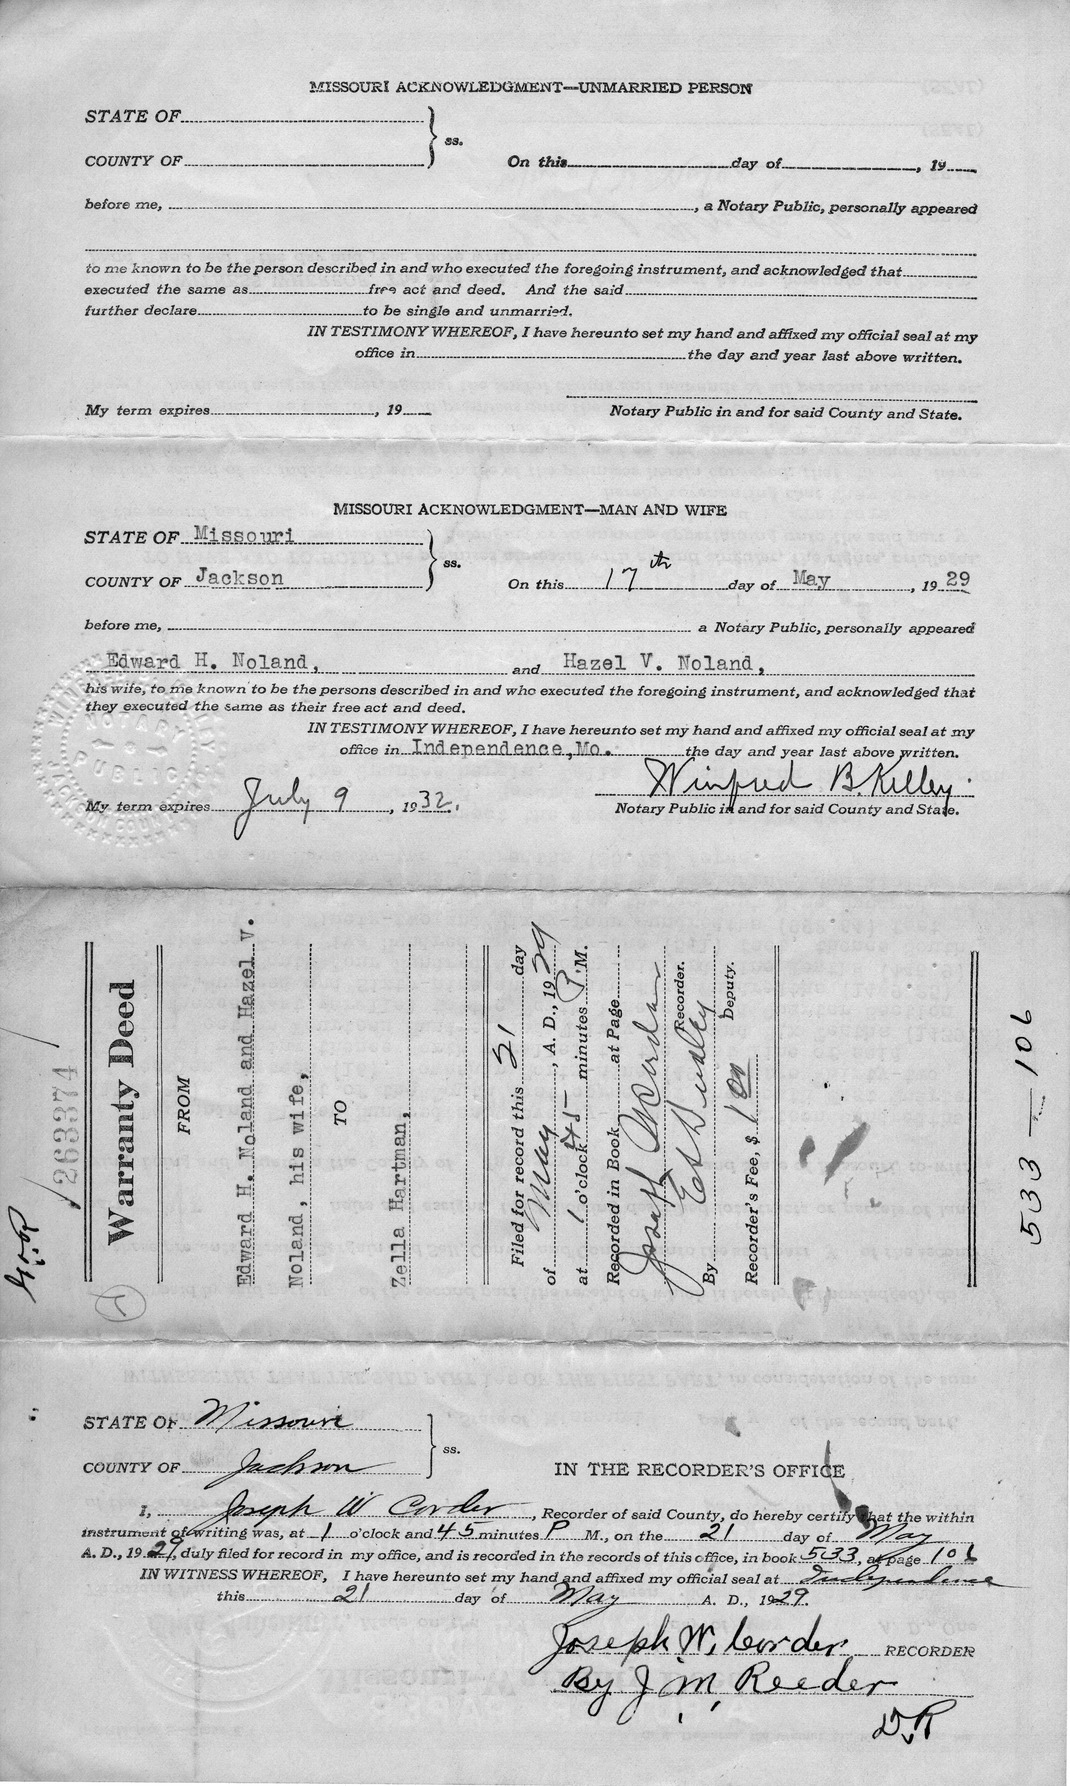 MISSOURI ACKNOWLEDGMENT—UNMARRIED PERSON
STATE OF
ss.
COUNTY OF
On this day of , 19
before me, , a Notary Public, personally appeared
to me known to be the person described in and who executed the foregoing instrument, and acknowledged that
executed the same as free act and deed. And the said
further declare to be single and unmarried.
IN TESTIMONY WHEREOF, I have hereunto set my hand and affixed my official seal at my
office in the day and year last above written.
My term expires , 19
Notary Public in and for said County and State.
MISSOURI ACKNOWLEDGMENT—MAN AND WIFE
STATE OF Missouri
ss.
COUNTY OF Jackson
On this 17th day of May , 19 29
before me, a Notary Public, personally appeared
Edward H. Noland, and Hazel V. Noland,
his wife, to me known to be the persons described in and who executed the foregoing instrument, and acknowledged that
they executed the same as their free act and deed.
IN TESTIMONY WHEREOF, I have hereunto set my hand and affixed my official seal at my
office in Independence, Mo. the day and year last above written.
Winifred B. Kelley
My term expires July 9 , 19 32.
Notary Public in and for said County and State.
NOTARY
PUBLIC
263374
Warranty Deed
FROM
Edward H. Noland and Hazel V.
Noland, his wife,
TO
Zella Hartman,
Filed for record this 21 day
of May , A. D., 19 29
at 1 o'clock 45 minutes P. M.
Recorded in Book at Page
Joseph W. Corder
Recorder.
By
Deputy.
Recorder's Fee, $ 1 00
533—106
STATE OF Missouri
ss.
COUNTY OF Jackson
IN THE RECORDER'S OFFICE
I, Joseph W Corder , Recorder of said County, do hereby certify that the within
instrument of writing was, at 1 o'clock and 45 minutes P M., on the 21 day of May
A. D., 19 29, duly filed for record in my office, and is recorded in the records of this office, in book 533, at page 106
IN WITNESS WHEREOF, I have hereunto set my hand and affixed my official seal at Independence
this 21 day of May A. D., 1929.
Joseph W. Corder RECORDER
By J. M. Reeder
D.R